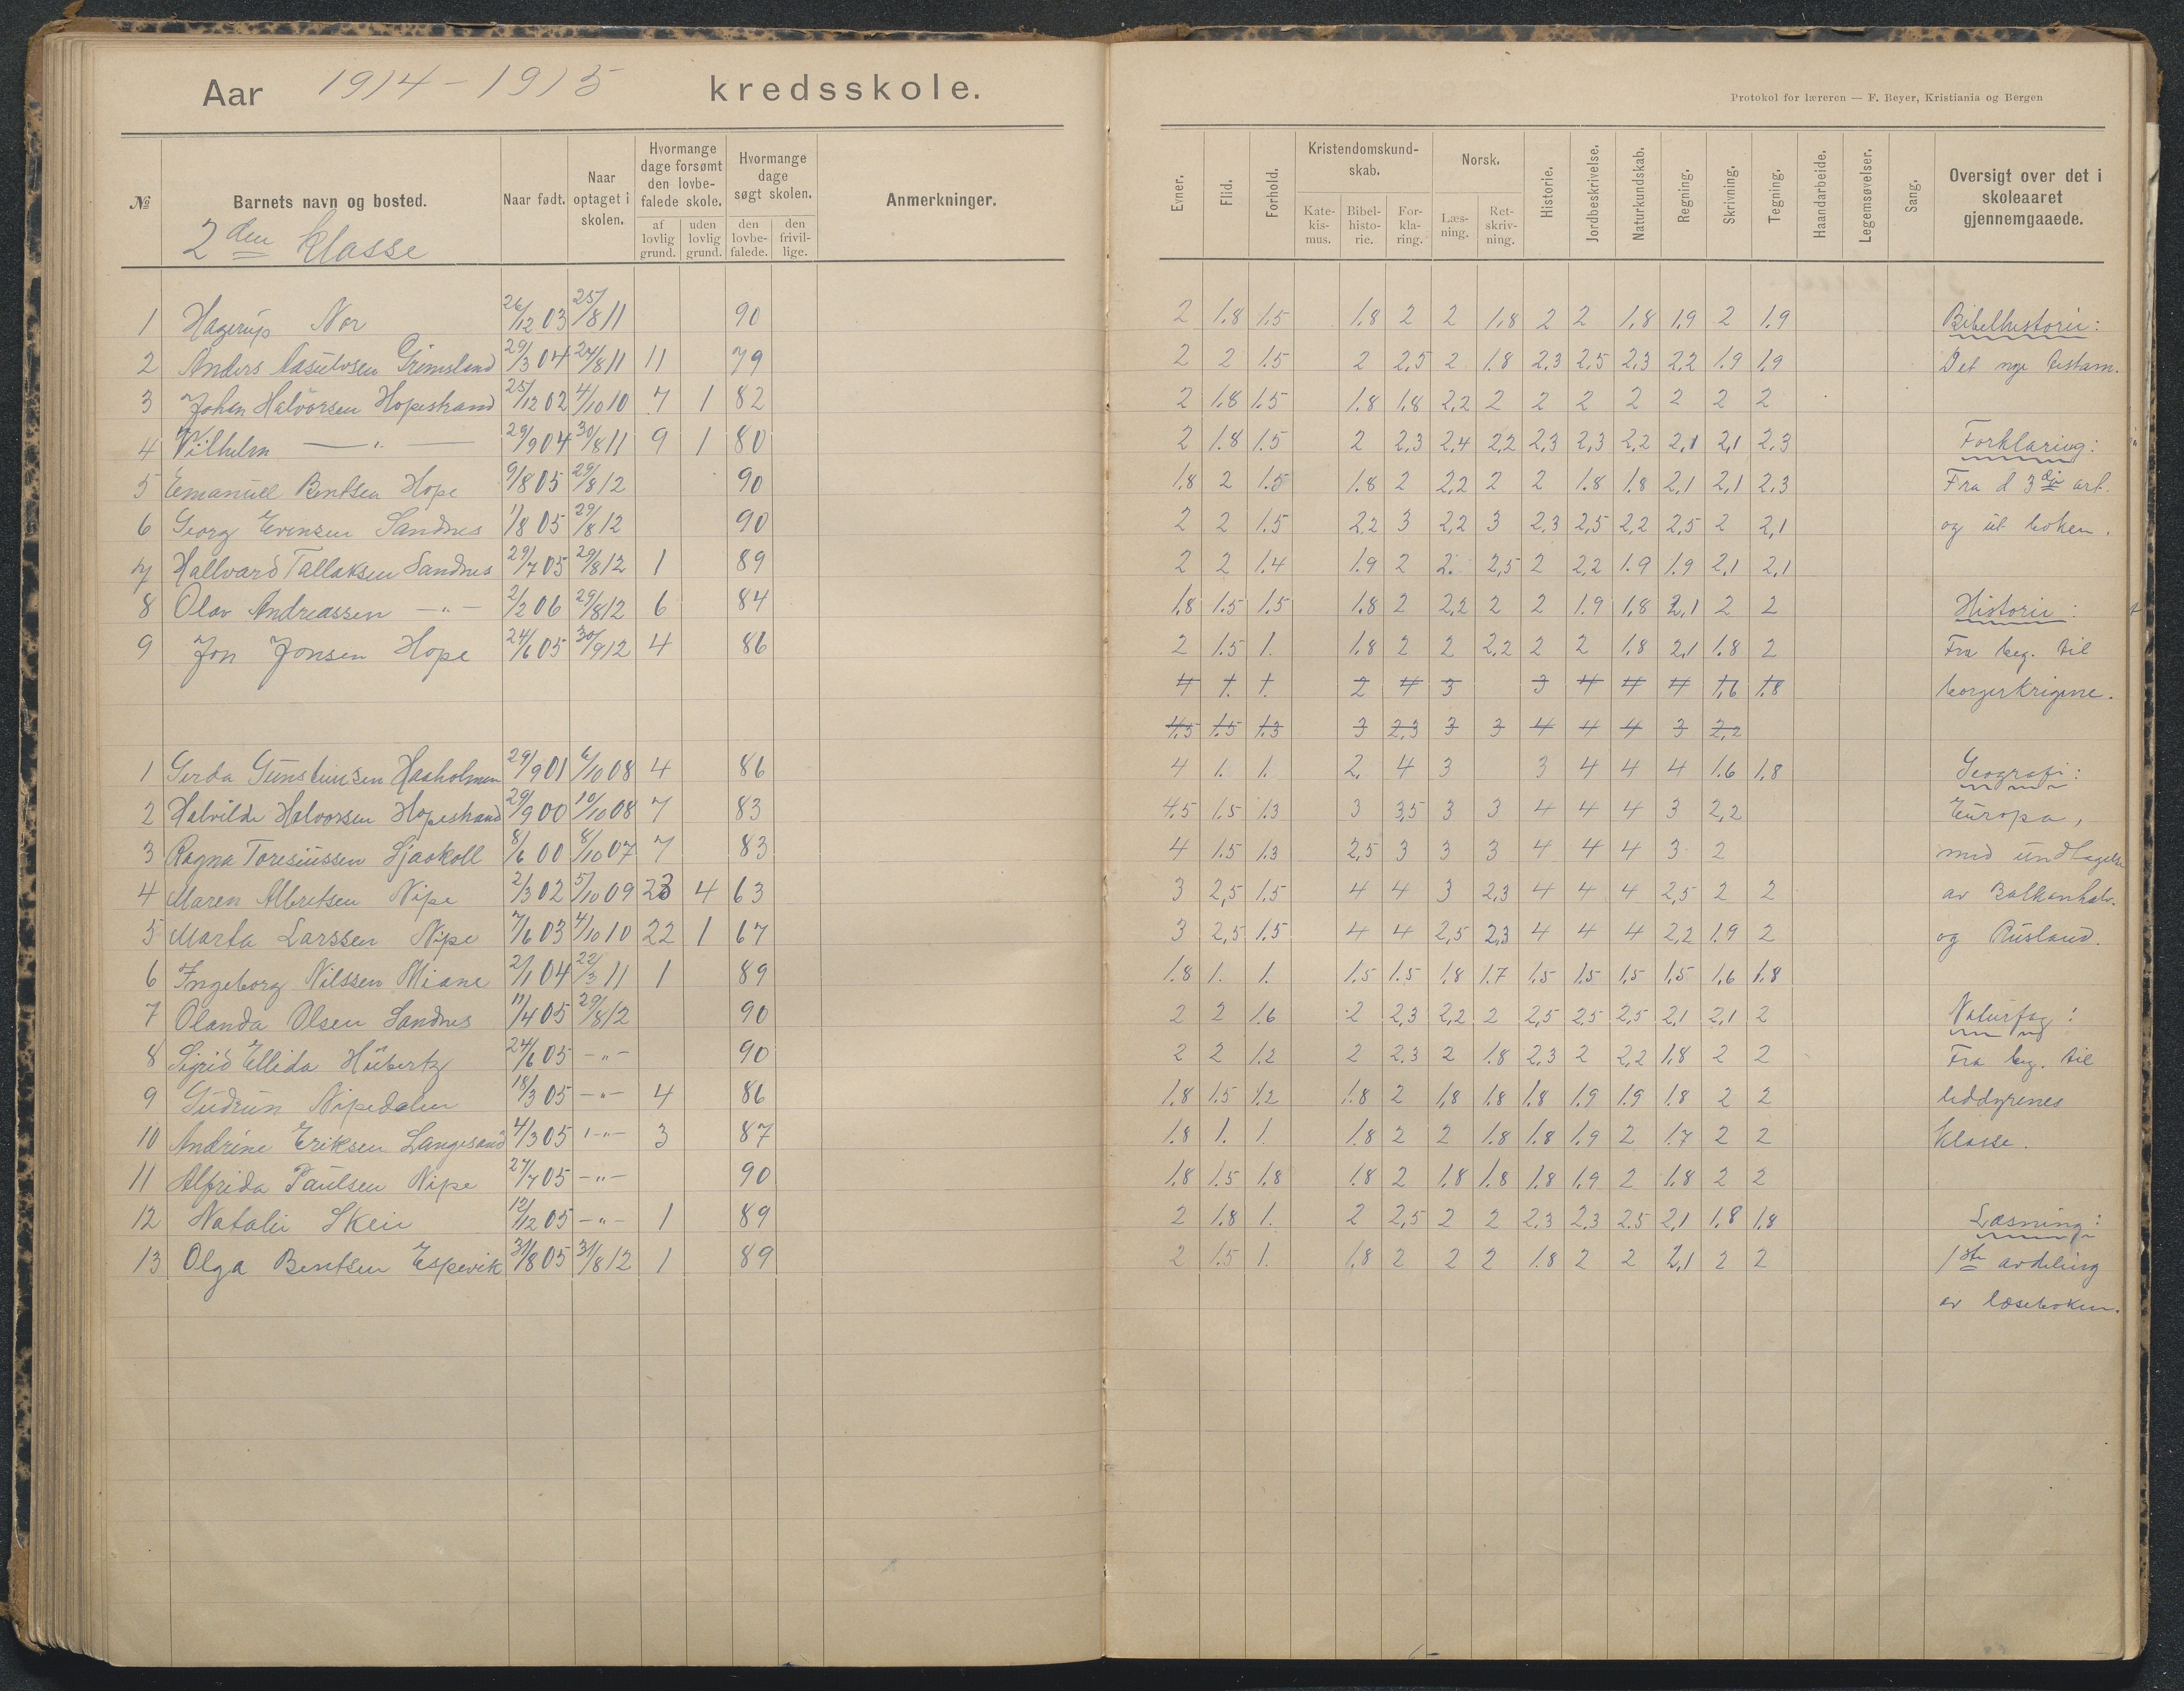 Aar 1914-1915 kredsskole.
Protokol for læreren — F. Beyer, Kristiania og Bergen
№ Barnets navn og bosted. Naar født. Naar optaget i skolen. Hvormange dage forsømt den lovbefalede skole. af lovlig grund. uden lovlig grund. Hvormange dage søgt skolen. den lovbefalede. den frivillige. Anmerkninger.
Evner. Flid. Forhold. Kristendomskundskab. Katekismus. Bibelhistorie. Forklaring. Norsk. Læsning. Retskrivning. Historie. Jordbeskrivelse. Naturkundskab. Regning. Skrivning. Tegning. Haandarbeide. Legemsøvelser. Sang. Oversigt over det i skoleaaret gjennemgaaede.
2den klasse
1 Hagerup Nor 26/12 03 25/8 11 90 2 1.8 1.5 1.8 2 2 1.8 2 2 1.8 1.9 2 1.9 Bibelhistorie:
2 Anders Aasulvsen Grimsland 29/3 04 24/8 11 11 79 2 2 1.5 2 2,5 2 1.8 2.3 2,5 2,3 2,2 1.9 1.9 Det nye testam.
3 Johan Halvorsen Hopestrand 25/12 02 4/10 10 7 1 82 2 1.8 1.5 1.8 1.8 2,2 2 2 2 2 2 2 2
4 Vilhelm — " — 29/9 04 30/8 11 9 1 80 2 1.8 1.5 2 2,3 2,4 2,2 2,3 2,3 2,2 2,1 2,1 2,3 Forklaring:
5 Emanuel Bentsen Hope 9/8 05 29/8 12 90 1.8 2 1.5 1.8 2 2,2 2 2 1.8 1.8 2,1 2,1 2,3 Fra d 3die art.
6 Georg Evensen Sandnes 1/8 05 29/8 12 90 2 2 1.5 2,2 3 2,2 3 2,3 2,5 2,2 2,5 2 2,1 og ut boken.
7 Hallvard Tallaksen Sandnes 29/7 05 29/8 12 1 89 2 2 1.4 1.9 2 2. 2,5 2 2,2 1.9 1.9 2,1 2,1
8 Olav Andreassen — " — 2/2 06 29/8 12 6 84 1.8 1.5 1.5 1.8 2 2,2 2 2 1.9 1,8 2,1 2 2 Historie:
9 Jon Jonsen Hope 24/6 05 30/9 12 4 86 2 1.5 1. 1.8 2 2 2,2 2 2 1.8 2,1 1.8 2 Fra beg. til
4 1. 1. 2 4 3 3 4 4 4 1,6 1.8 borgerkrigene.
4,5 1.5 1.3 3 2,3 3 3 4 4 4 3 2,2
1 Gerda Gunstuinsen Haaholmen 29/9 01 6/10 08 4 86 4 1. 1. 2. 4 3 3 4 4 4 1.6 1,8 Geografi:
2 Halvilde Halvorsen Hopestrand 29/9 00 10/10 08 7 83 4.5 1.5 1.3 3 3,5 3 3 4 4 4 3 2,2 Europa,
3 Ragna Toresiussen Sjaakoll 8/6 00 8/10 07 7 83 4 1.5 1.3 2,5 3 3 3 4 4 4 3 2 med undtagelse
4 Maren Albretsen Nipe 2/3 02 5/10 09 23 4 63 3 2,5 1.5 4 4 3 2,3 4 4 4 2,5 2 2 av Balkanhalv.
5 Marta Larssen Nipe 7/6 03 4/10 10 22 1 67 3 2,5 1.5 4 4 2,5 2,3 4 4 4 2,2 1.9 2 og Rusland.
6 Ingeborg Nilssen Miane 2/1 04 22/3 11 1 89 1.8 1. 1. 1.5 1.5 1,8 1.7 1,5 1.5 1,5 1,5 1,6 1,8
7 Olanda Olsen Sandnes 11/4 05 29/8 12 90 2 2 1.6 2 2,3 2,2 2 2,5 2,5 2,5 2,1 2,1 2 Naturfag:
8 Sigrid Ellida Hübertz 24/6 05 — " — 90 2 2 1.2 2 2.3 2 1.8 2,3 2 2,2 1,8 2 2 Fra beg. til
9 Gudrun Nipedalen 18/3 05 — " — 4 86 1.8 1.5 1.2 1.8 2 1,8 1.8 1.8 1.9 1.9 1.8 2 2 leddyrenes
10 Andrine Eriksen Langesand 4/3 05 — " — 3 87 1.8 1. 1. 1.8 2 2 1.8 1.8 1.9 2 1.7 2 2 klasse.
11 Alfrida Paulsen Nipe 27/7 05 — " — 90 1.8 1.5 1.8 1.8 2 1.8 1.8 1.8 1.9 2 1.8 2 2
12 Natalie Skeie 12/12 05 — " — 1 89 2 1.8 1. 2 2,5 2 2 2,3 2,3 2.5 2,1 1,8 1,8 Læsning:
13 Olga Bentsen Espevik 31/8 05 31/8 12 1 89 2 1.5 1. 1,8 2 2 2 1.8 2 2 2,1 2 2 1ste avdeling
av læseboken.